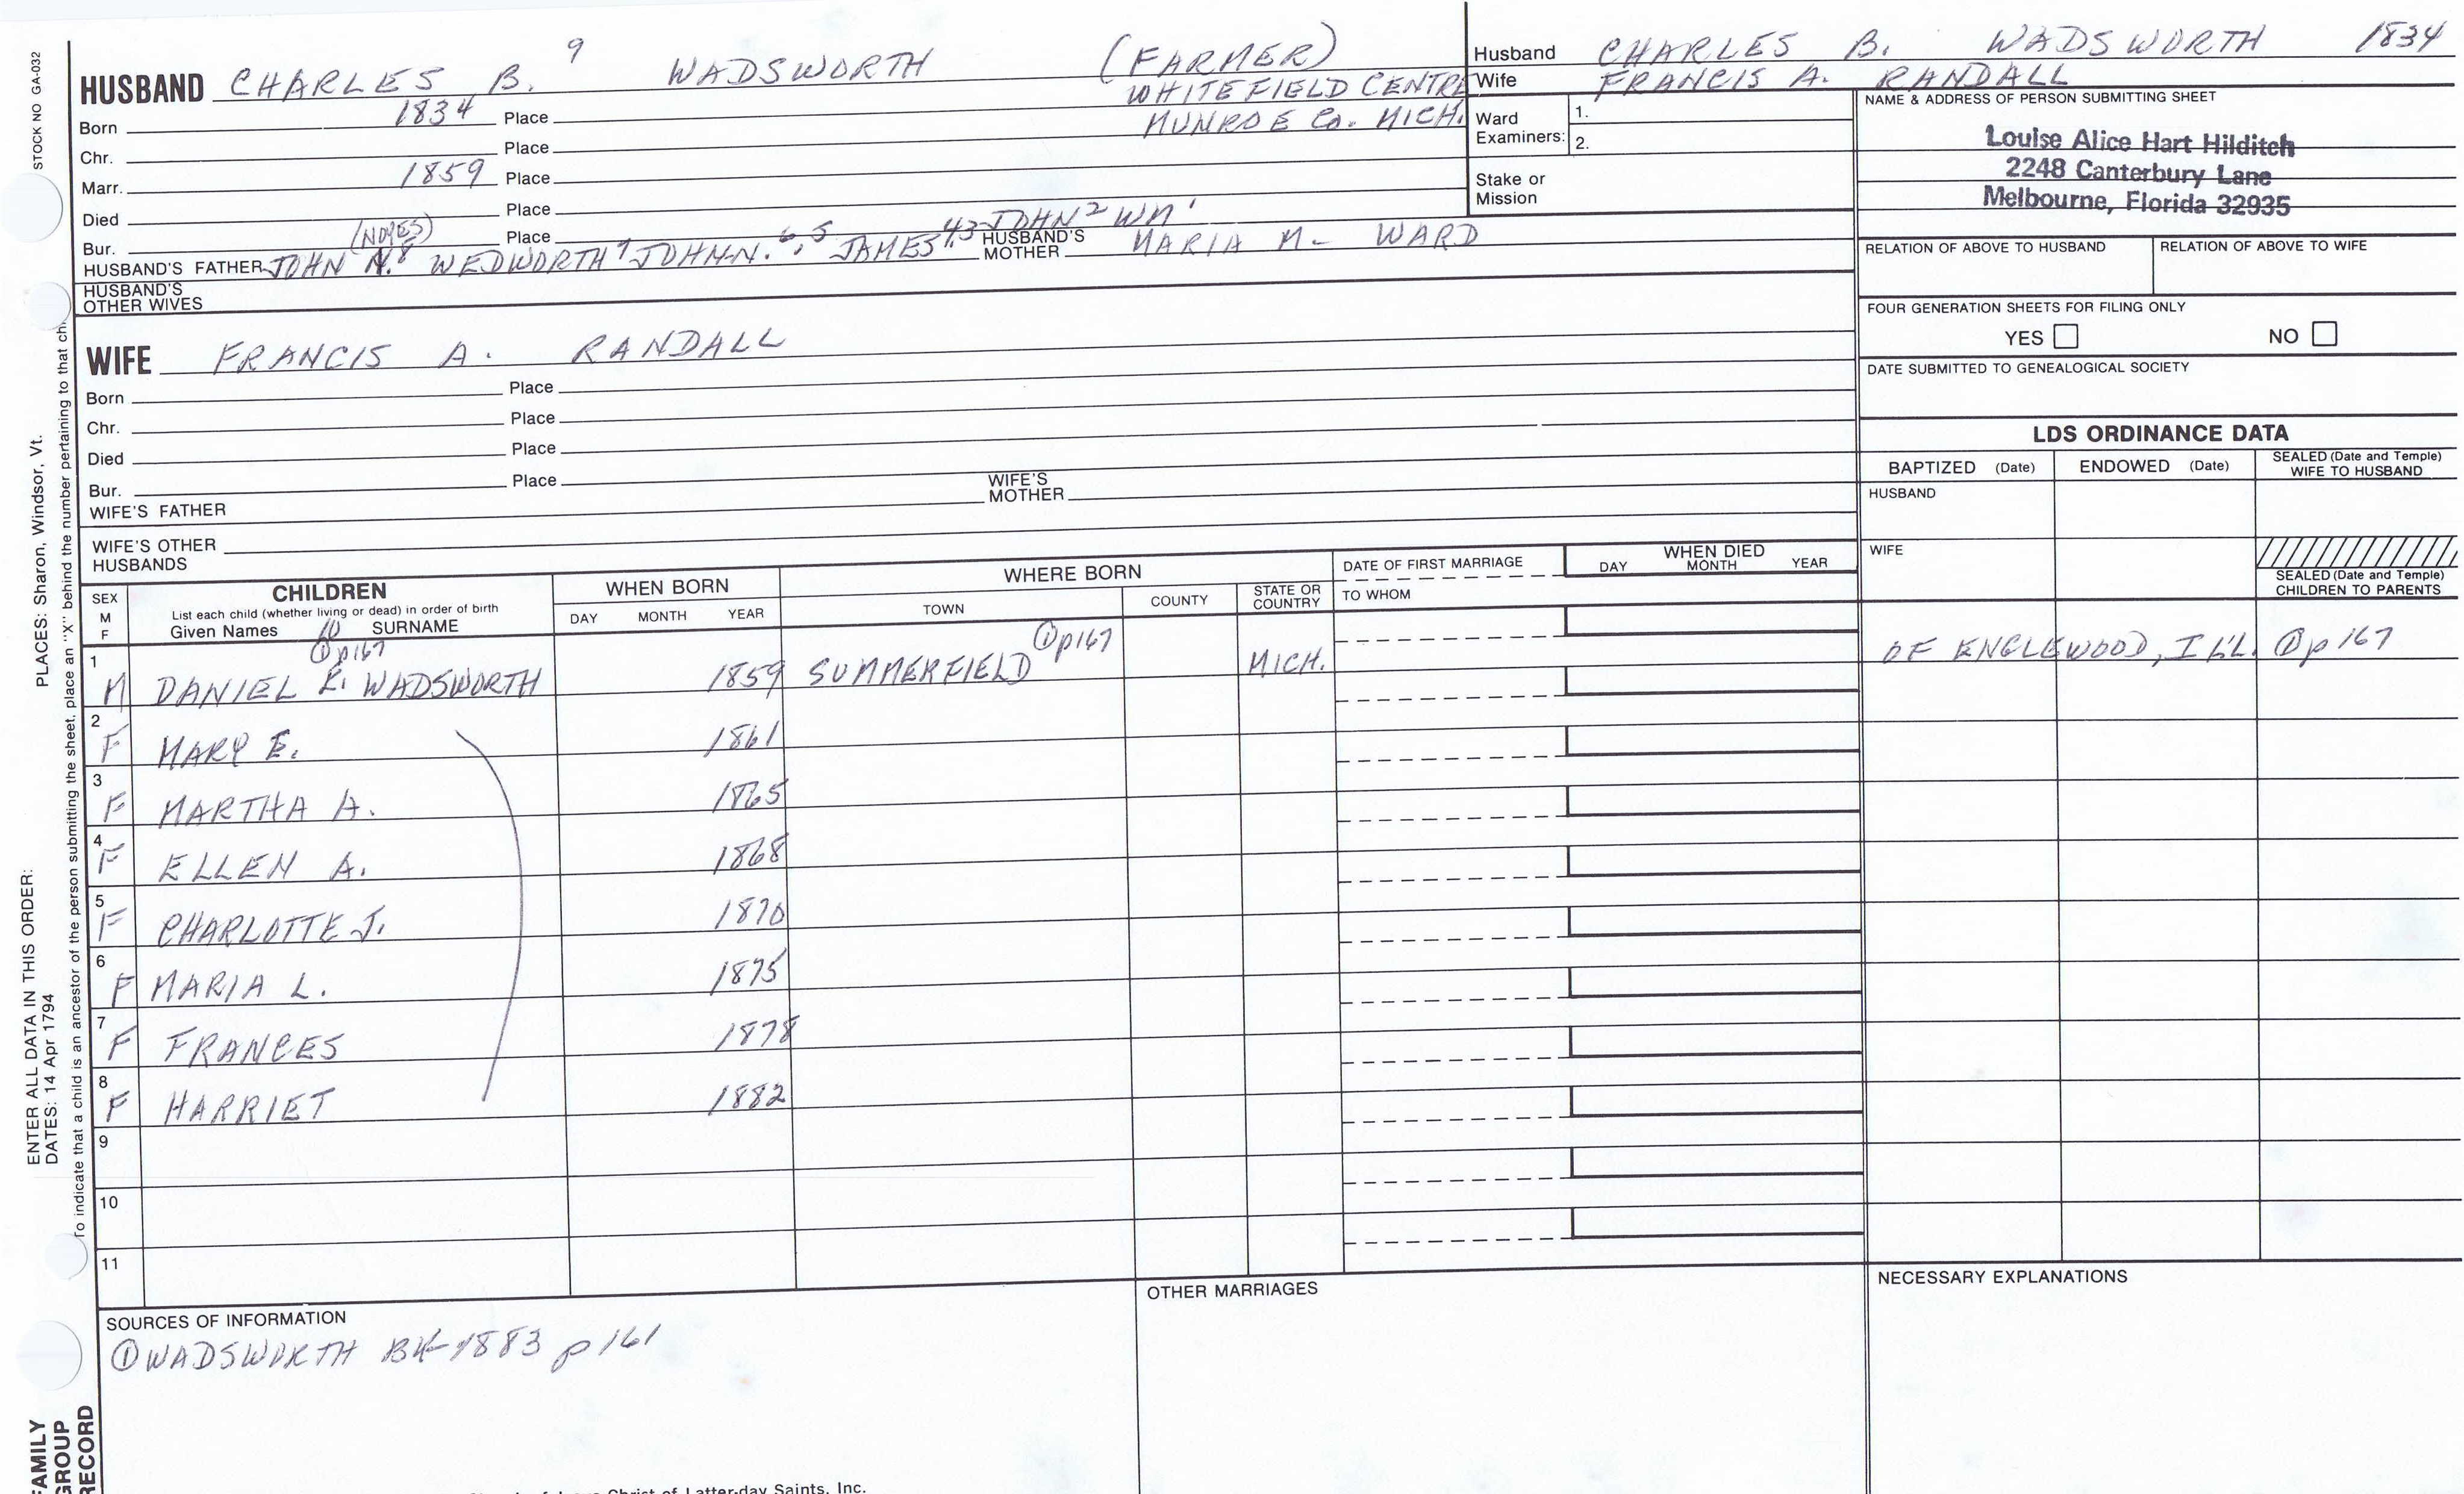 STOCK NO GA-032
PLACES: Sharon, Windsor, Vt.
ENTER ALL DATA IN THIS ORDER:
DATES: 14 Apr 1794
To indicate that a child is an ancestor of the person submitting the sheet, place an "X" behind the number pertaining to that chi
FAMILY
GROUP
RECORD
HUSBAND CHARLES B. 9 WADSWORTH (FARMER)
WHITEFIELD CENTRE
Born 1834 Place MUNROE Co. MICH.
Chr. Place
Marr. 1859 Place
Died Place
Bur. Place
HUSBAND'S FATHER JOHN N.8 (NOYES) WEDWORTH 7 JOHN N. 6, 5 JAMES 4,3 JOHN 2 WM 1 HUSBAND'S MOTHER MARIA M. WARD
HUSBAND'S
OTHER WIVES
WIFE FRANCIS A. RANDALL
Born Place
Chr. Place
Died Place
Bur. Place
WIFE'S FATHER WIFE'S MOTHER
WIFE'S OTHER
HUSBANDS
Husband CHARLES B. WADSWORTH 1834
Wife FRANCIS A. RANDALL
Ward Examiners: 1.
2.
Stake or
Mission
NAME & ADDRESS OF PERSON SUBMITTING SHEET
Louise Alice Hart Hilditch
2248 Canterbury Lane
Melbourne, Florida 32935
RELATION OF ABOVE TO HUSBAND RELATION OF ABOVE TO WIFE
FOUR GENERATION SHEETS FOR FILING ONLY
YES NO
DATE SUBMITTED TO GENEALOGICAL SOCIETY
LDS ORDINANCE DATA
BAPTIZED (Date) ENDOWED (Date) SEALED (Date and Temple) WIFE TO HUSBAND
HUSBAND
WIFE
SEALED (Date and Temple)
CHILDREN TO PARENTS
SEX M F CHILDREN WHEN BORN WHERE BORN DATE OF FIRST MARRIAGE WHEN DIED
List each child (whether living or dead) in order of birth
Given Names 10 SURNAME DAY MONTH YEAR TOWN COUNTY STATE OR COUNTRY TO WHOM DAY MONTH YEAR
① p167 ① p167
1 M DANIEL E. WADSWORTH 1859 SUMMERFIELD MICH. OF ENGLEWOOD, ILL. ① p 167
2 F MARY E. 1861
3 F MARTHA A. 1865
4 F ELLEN A. 1868
5 F CHARLOTTE J. 1870
6 F MARIA L. 1875
7 F FRANCES 1878
8 F HARRIET 1882
9
10
11
SOURCES OF INFORMATION
① WADSWORTH BK 1883 p 161
OTHER MARRIAGES
NECESSARY EXPLANATIONS
Christ of Latter-day Saints, Inc.